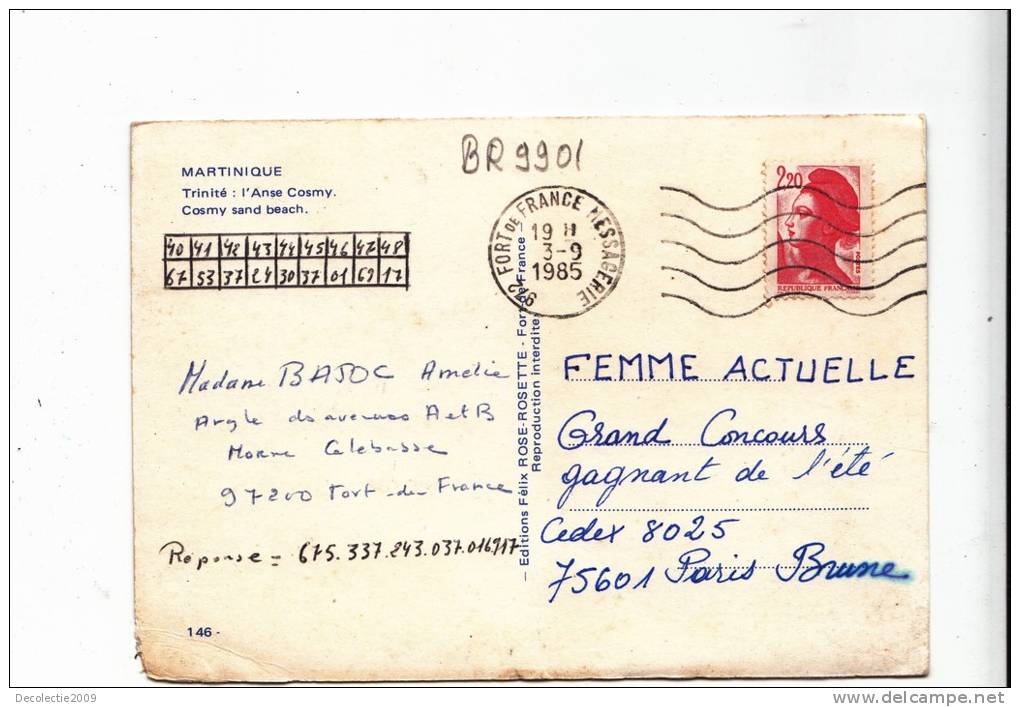 BR 9901
MARTINIQUE
Trinité : l'Anse Cosmy.
Cosmy sand beach.
40 41 42 43 44 45 46 47 48
67 53 37 24 30 37 01 69 17
972 FORT DE FRANCE MESSAGERIE
19 H
3-9
1985
2,20
POSTES
REPUBLIQUE FRANÇAISE
Madame BAJOC Amélie
Angle ds avenues A et B
Morne Calebasse
97200 Fort-de-France
Réponse = 675.337.243.037.016917
146 -
— Editions Félix ROSE-ROSETTE - Fort-de-France —
Reproduction interdite
FEMME ACTUELLE
Grand Concours
gagnant de l'été
Cedex 8025
75601 Paris Brune
Decolectie2009
www.delcampe.net